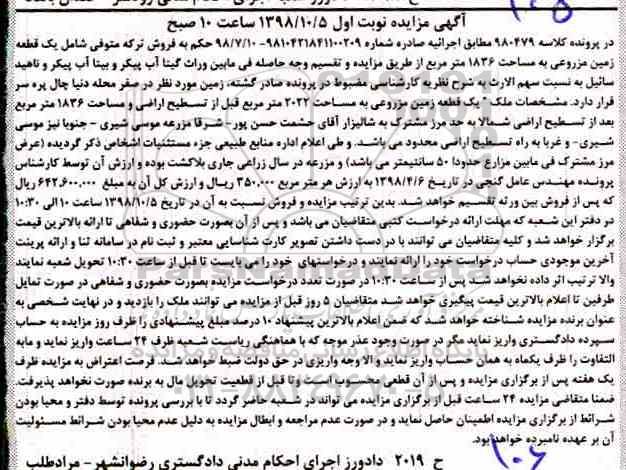 آگهی مزایده نوبت اول ۱۳۹۸/۱۰/۵ ساعت ۱۰ صبح
در پرونده کلاسه ۹۸۰۴۷۹ مطابق اجرائیه صادره شماره ۹۸۱۰۴۲۱۸۴۱۱۰۰۲۰۹-۹۸/۷/۱۰ حکم به فروش ترکه متوفی شامل یک قطعه
زمین مزروعی به مساحت ۱۸۳۶ متر مربع از طریق مزایده و تقسیم وجه حاصله فی مابین وراث گیتا آب پیکر و بیتا آب پیکر و ناهید
سائیل به نسبت سهم الارث به شرح نظریه کارشناسی مضبوط در پرونده صادر گشته، زمین مورد نظر در صفر محله دنیا چال پره سر
قرار دارد. مشخصات ملک: یک قطعه زمین مزروعی به مساحت ۲۰۲۲ متر مربع قبل از تسطیح اراضی و مساحت ۱۸۳۶ متر مربع
بعد از تسطیح اراضی شمالا به حد مرز مشترک به شالیزار آقای حشمت حسن پور- شرقا مزرعه موسی شیری - جنوبا نیز موسی
شیری- و غربا به راه تسطیح اراضی محدود می باشد. و طی اعلام اداره منابع طبیعی جزء مستثنیات اشخاص ذکر گردیده (عرض
مرز مشترک فی مابین مزارع حدودا ۵۰ سانتیمتر می باشد) و مزرعه در سال زراعی جاری بلاکشت بوده و ارزش آن توسط کارشناس
پرونده مهندس عامل گنجی در تاریخ ۱۳۹۸/۴/۶ به ارزش هر متر مربع ۳۵۰,۰۰۰ ریال و ارزش کل آن به مبلغ ۶۴۲,۶۰۰,۰۰۰ ریال
که پس از فروش بین ورثه تقسیم خواهد شد. بدین ترتیب مزایده و فروش نسبت به آن در تاریخ ۱۳۹۸/۱۰/۵ ساعت ۱۰ الی ۱۰:۳۰
در دفتر این شعبه که مهلت ارائه درخواست کتبی متقاضیان می باشد و پس از آن بصورت حضوری و شفاهی تا ارائه بالاترین قیمت
برگزار خواهد شد و کلیه متقاضیان می توانند با در دست داشتن تصویر کارت شناسایی معتبر و ثبت نام در سامانه ثنا و ارائه پرینت
آخرین موجودی حساب درخواست خود را ارائه نمایند و درخواستهای خود را می بایست تا قبل از ساعت ۱۰:۳۰ تحویل شعبه نمایند
والا ترتیب اثر داده نخواهد شد پس از ساعت ۱۰:۳۰ در صورت تعدد درخواست مزایده بصورت حضوری و شفاهی در صورت تمایل
طرفین تا اعلام بالاترین قیمت پیگیری خواهد شد متقاضیان ۵ روز قبل از مزایده می توانند ملک را بازدید و در نهایت شخصی به
عنوان برنده مزایده شناخته خواهد شد که ضمن اعلام بالاترین پیشنهاد ۱۰ درصد مبلغ پیشنهادی را ظرف روز مزایده به حساب
سپرده دادگستری واریز نماید مگر در صورت وجود عذر موجه که با هماهنگی ریاست شعبه ظرف ۲۴ ساعت واریز نماید و مابه
التفاوت را ظرف یکماه به همان حساب واریز نماید و الا وجه واریزی در حق دولت ضبط خواهد شد. فرصت اعتراض به مزایده ظرف
یک هفته پس از برگزاری مزایده و پس از آن قطعی محسوب می شود و تا قبل از قطعیت تحویل مال به برنده صورت نخواهد پذیرفت.
ضمنا متقاضی مزایده ۲۴ ساعت قبل از برگزاری مزایده می تواند در شعبه حاضر گردد تا با بررسی پرونده توسط دفتر و محیا بودن
شرائط از برگزاری مزایده اطمینان حاصل نماید و در صورت عدم مراجعه و ابطال مزایده به دلیل عدم محیا بودن شرائط مسئولیت
آن بر عهده نامبرده خواهد بود.
ح ۲۰۱۹ دادورز اجرای احکام مدنی دادگستری رضوانشهر- مرادطلب